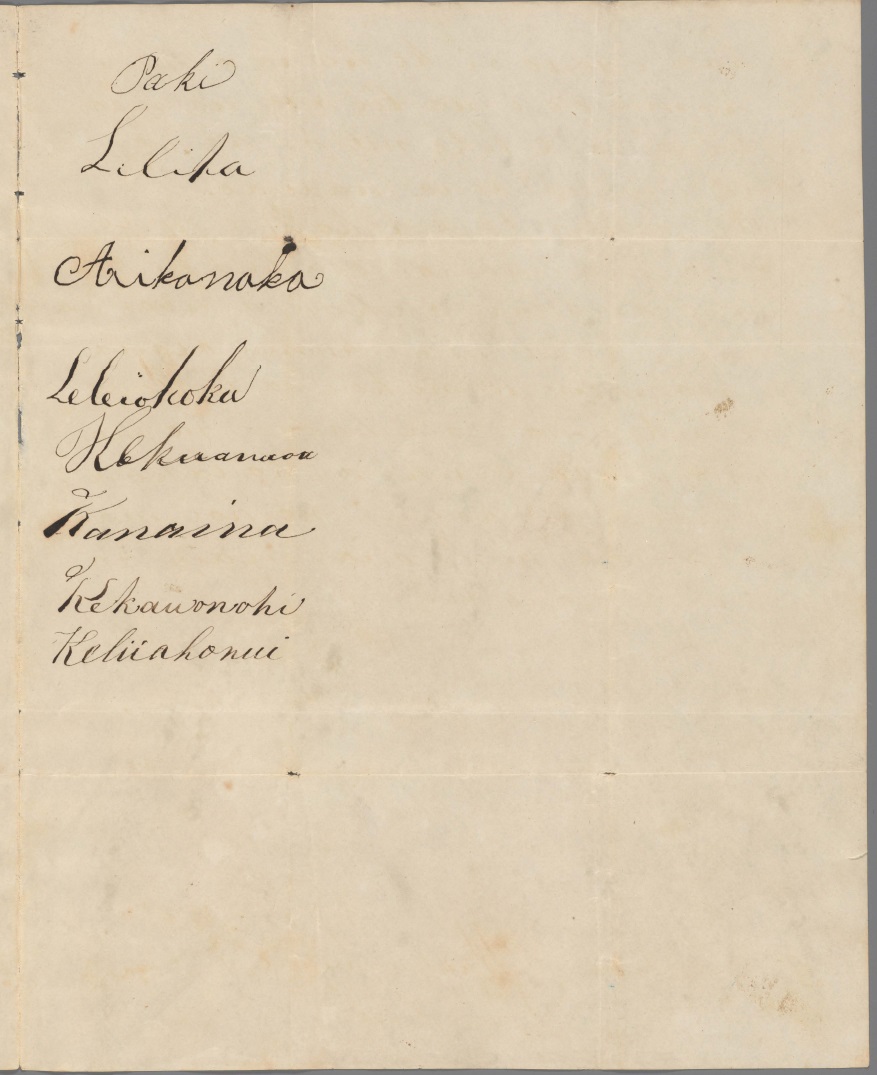 Paki
Leliha
Aikanaka
Leleiohoku
Kekuanaoa
Kanaina
Kekauonohi
Keliiahonui